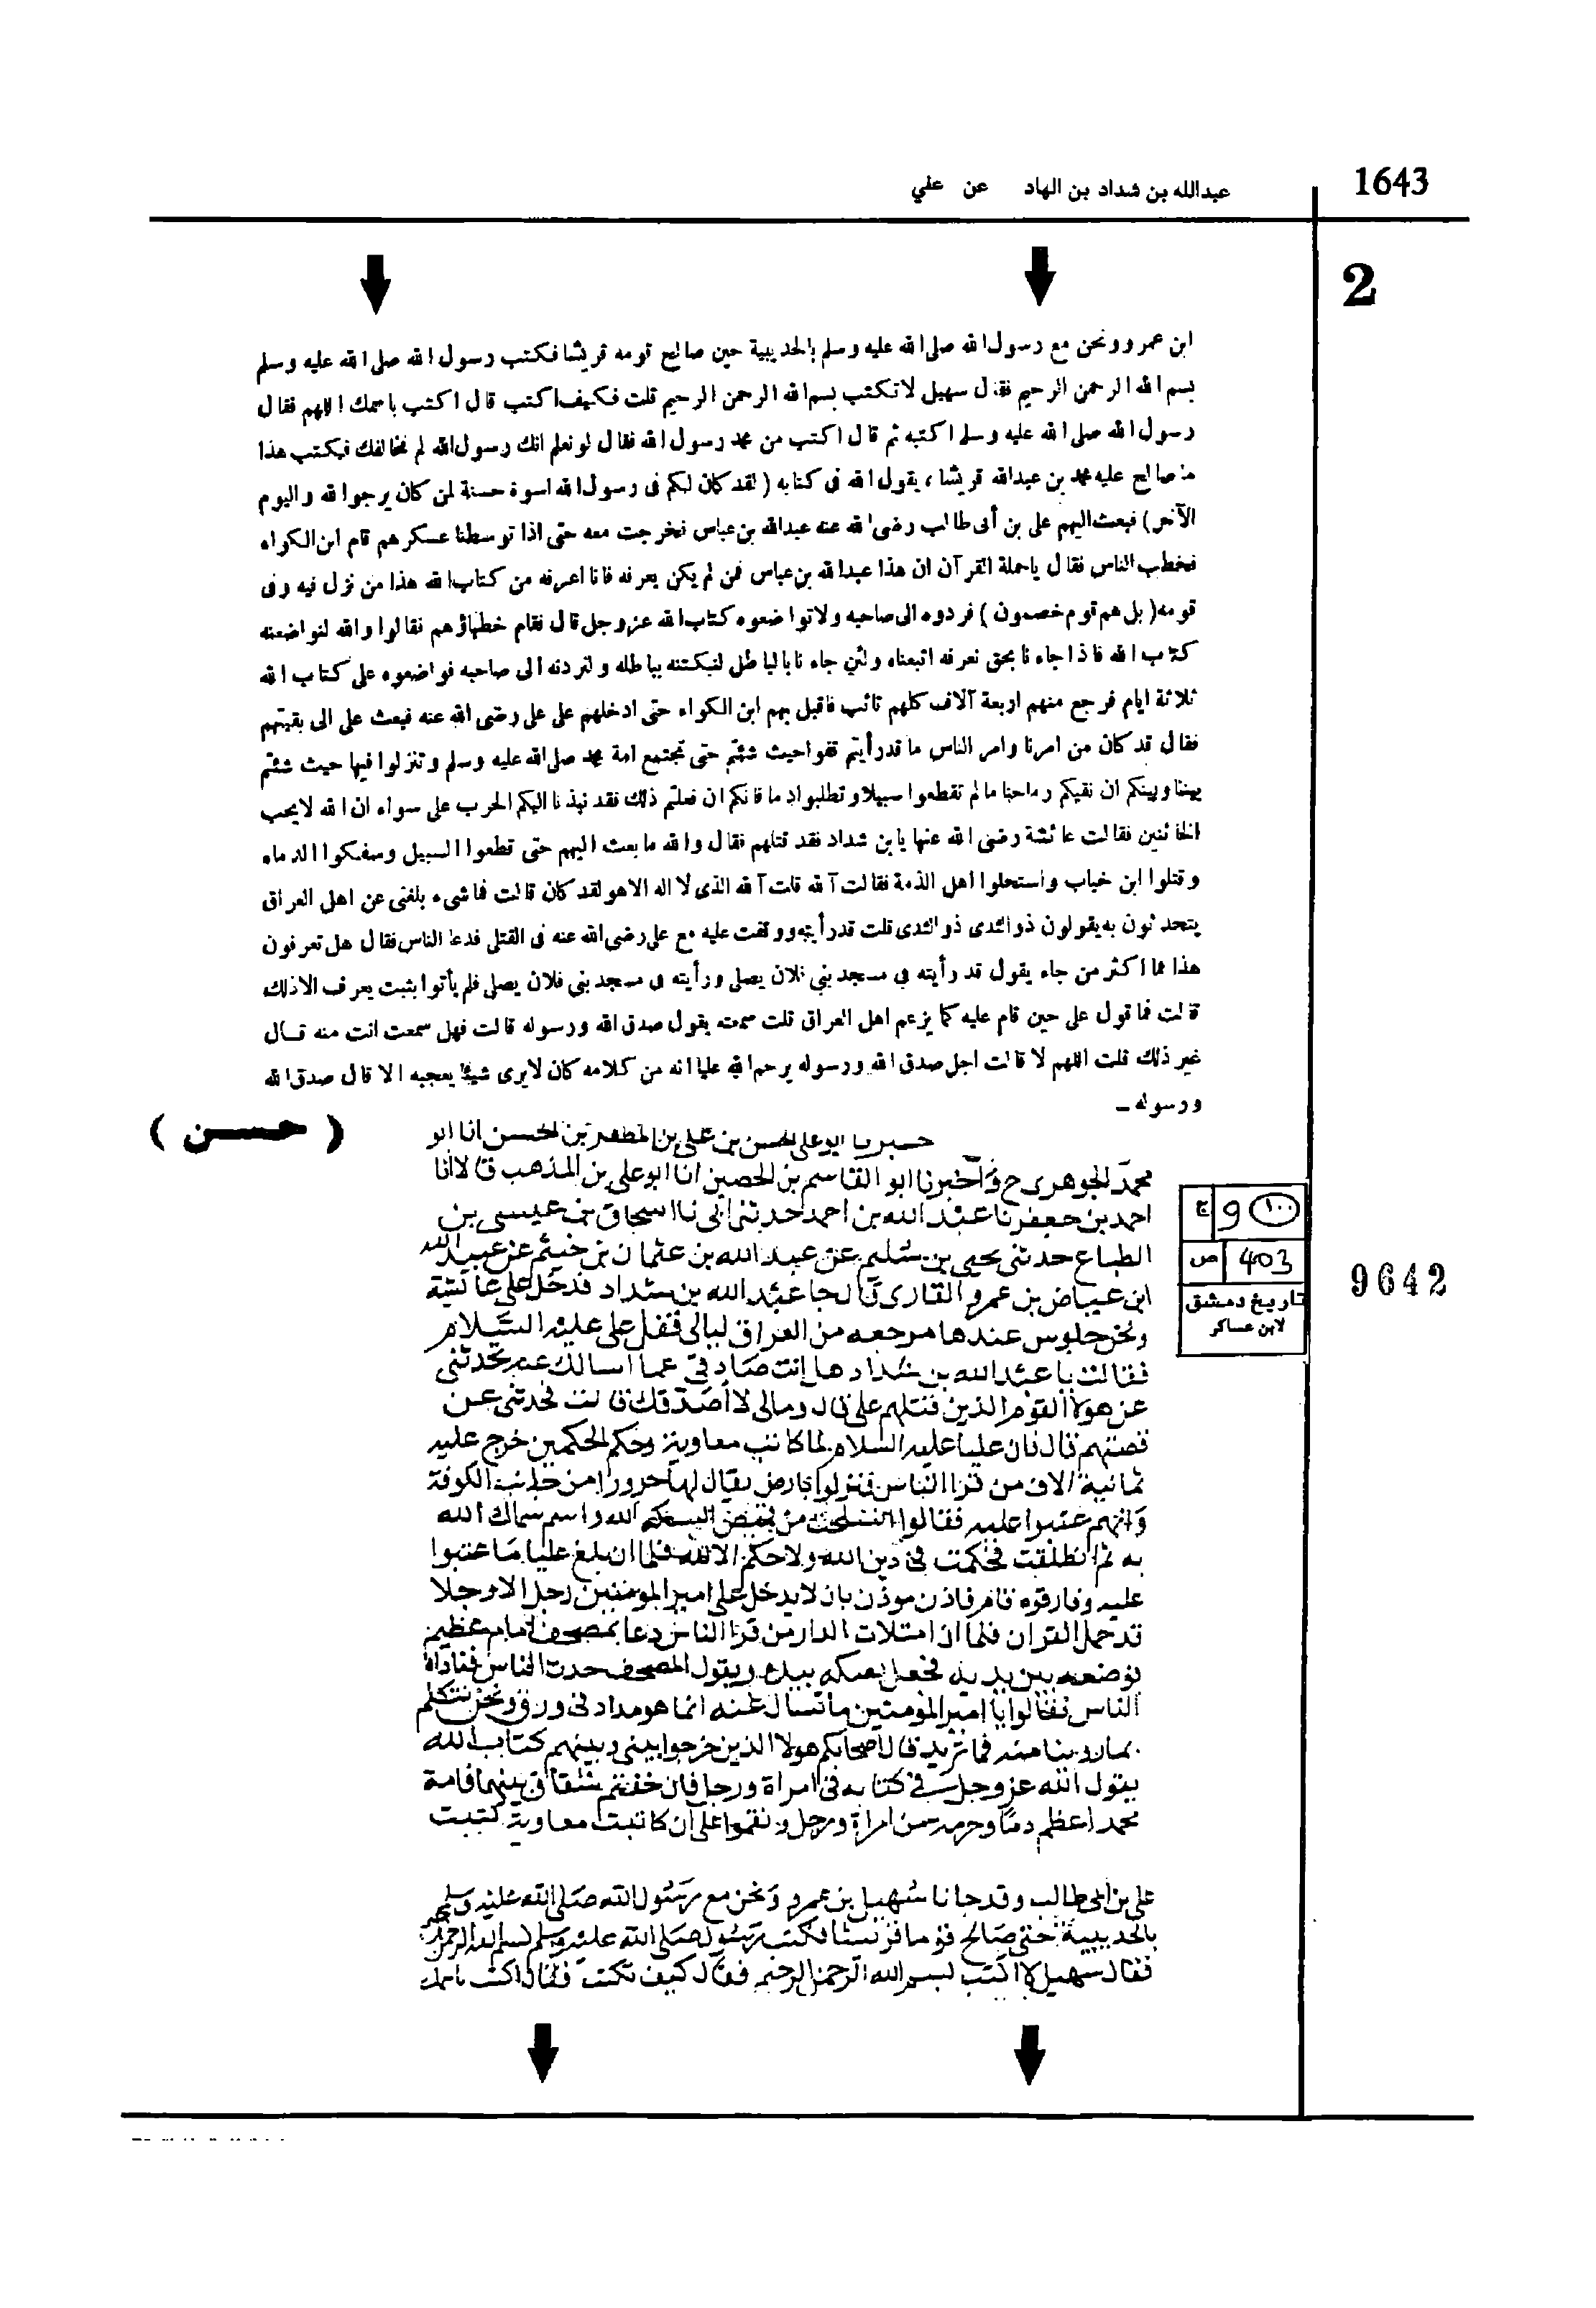 1643
عبدالله بن شداد بن الهاد عن علي
2
ابن عمرو ونحن مع رسول الله صلى الله عليه وسلم بالحديبية حين صالح قومه قريشا فكتب رسول الله صلى الله عليه وسلم
بسم الله الرحمن الرحيم فقال سهيل لا تكتب بسم الله الرحمن الرحيم قلت فكيف اكتب قال اكتب باسمك اللهم فقال
رسول الله صلى الله عليه وسلم اكتبه ثم قال اكتب من محمد رسول الله فقال لو نعلم انك رسول الله لم نخالفك فيكتب هذا
ما صالح عليه محمد بن عبدالله قريشا ، يقول الله فى كتابه ( لقد كان لكم فى رسول الله اسوة حسنة لمن كان يرجو الله واليوم
الآخر ) فبعث اليهم على بن أبى طالب رضى الله عنه عبدالله بن عباس فخرجت معه حتى اذا توسطنا عسكرهم قام ابن الكواء
فخطب الناس فقال يا حملة القرآن ان هذا عبدالله بن عباس فمن لم يكن يعرفه فانا اعرفه من كتاب الله هذا من نزل فيه وفى
قومه ( بل هم قوم خصمون ) فردوه الى صاحبه ولا تواضعوه كتاب الله عز وجل قال فقام خطباؤهم فقالوا والله لنواضعنه
كتاب الله فاذا جاءنا بحق نعرفه اتبعناه ولئن جاءنا بالباطل لنبكتنه بباطله ولنردنه الى صاحبه فواضعوه على كتاب الله
ثلاثة ايام فرجع منهم اربعة آلاف كلهم تائب فاقبل بهم ابن الكواء حتى ادخلهم على على رضى الله عنه فبعث على الى بقيتهم
فقال قد كان من امرنا وامر الناس ما قد رأيتم قفوا حيث شئتم حتى تجتمع امة محمد صلى الله عليه وسلم وتنزلوا فيها حيث شئتم
بيننا وبينكم ان نقيكم رماحنا ما لم تقطعوا سبيلا وتطلبوا دما فانكم ان فعلتم ذلك فقد نبذنا اليكم الحرب على سواء ان الله لا يحب
الخائنين فقالت عائشة رضى الله عنها يا بن شداد فقد قتلهم فقال والله ما بعث اليهم حتى قطعوا السبيل وسفكوا الدماء
وقتلوا ابن خباب واستحلوا اهل الذمة فقالت آلله قلت آلله الذى لا اله الا هو لقد كان قالت فما شىء بلغنى عن اهل العراق
يتحدثون به يقولون ذو الثدى ذو الثدى قلت قد رأيته ووقفت عليه مع على رضى الله عنه فى القتلى فدعا الناس فقال هل تعرفون
هذا فما اكثر من جاء يقول قد رأيته فى مسجد بنى فلان يصلى ورأيته فى مسجد بنى فلان يصلى فلم يأتوا بثبت يعرف الا ذلك
قالت فما قول على حين قام عليه كما يزعم اهل العراق قلت سمعته يقول صدق الله ورسوله قالت فهل سمعت انت منه قال
غير ذلك قلت اللهم لا قالت اجل صدق الله ورسوله يرحم الله عليا انه من كلامه كان لا يرى شيئا يعجبه الا قال صدق الله
ورسوله ــ
( حسن )
ابو على الحسن بن على بن المظفر بن الحسن انا ابو
محمد الجوهرى ح وأخبرنا ابو القاسم بن الحصين انا ابو على بن المذهب قالا انا
احمد بن جعفر نا عبد الله بن احمد حدثنى ابى نا اسحاق بن عيسى بن
الطباع حدثنى يحيى بن سليم عن عبد الله بن عثمان بن خثيم عن عبيد الله
ابن عياض بن عمرو القارى قال جا عبد الله بن شداد فدخل على عائشة
ونحن جلوس عندها مرجعه من العراق ليالى قتل على عليه السلام
فقالت يا عبد الله بن شداد هل انت صادقى عما اسالك عنه تحدثنى
عن هولا القوم الذين قتلهم على قال ومالى لا أصدقك قالت فحدثنى عن
قصتهم قال فان عليا عليه السلام لما كاتب معاوية وحكم الحكمين خرج عليه
ثمانية الاف من قرا الناس فنزلوا بارض يقال لها حرورا من جانب الكوفة
وانهم عتبوا عليه فقالوا انسلخت من قميص البسكه الله واسم سماك الله
به ثم انطلقت فحكمت فى دين الله ولا حكم الا لله فلما ان بلغ عليا ما عتبوا
عليه وفارقوه فامر فاذن موذن بان لا يدخل على امير المومنين رجل الا رجلا
قد حمل القران فلما ان امتلات الدار من قرا الناس دعا بمصحف امام عظيم
فوضعه بين يديه فجعل يصكه بيده ويقول المصحف حدث الناس فناداه
الناس فقالوا يا امير المؤمنين ما تسال عنه انما هو مداد فى ورق ونحن نتكلم
بما روينا منه فما تريد قال اصحابكم هولا الذين خرجوا بينى وبينهم كتاب الله
يقول الله عز وجل فى كتابه فى امراة ورجل فان خفتم شقاق بينهما فامة
محمد اعظم دما وحرمة من امراة ورجل ونقموا على أن كاتبت معاوية كتبت
على بن ابى طالب وقد جانا سهيل بن عمرو ونحن مع رسول الله صلى الله عليه وسلم
بالحديبية حتى صالح قوما قريشا فكتب رسول صلى الله عليه وسلم بسم الله الرحمن الرحيم
فقال سهيل لا اكتب بسم الله الرحمن الرحيم فقال كيف تكتب فقال اكتب باسمك
ج و ١٠٠
ص 403
تاريخ دمشق
لابن عساكر
9642